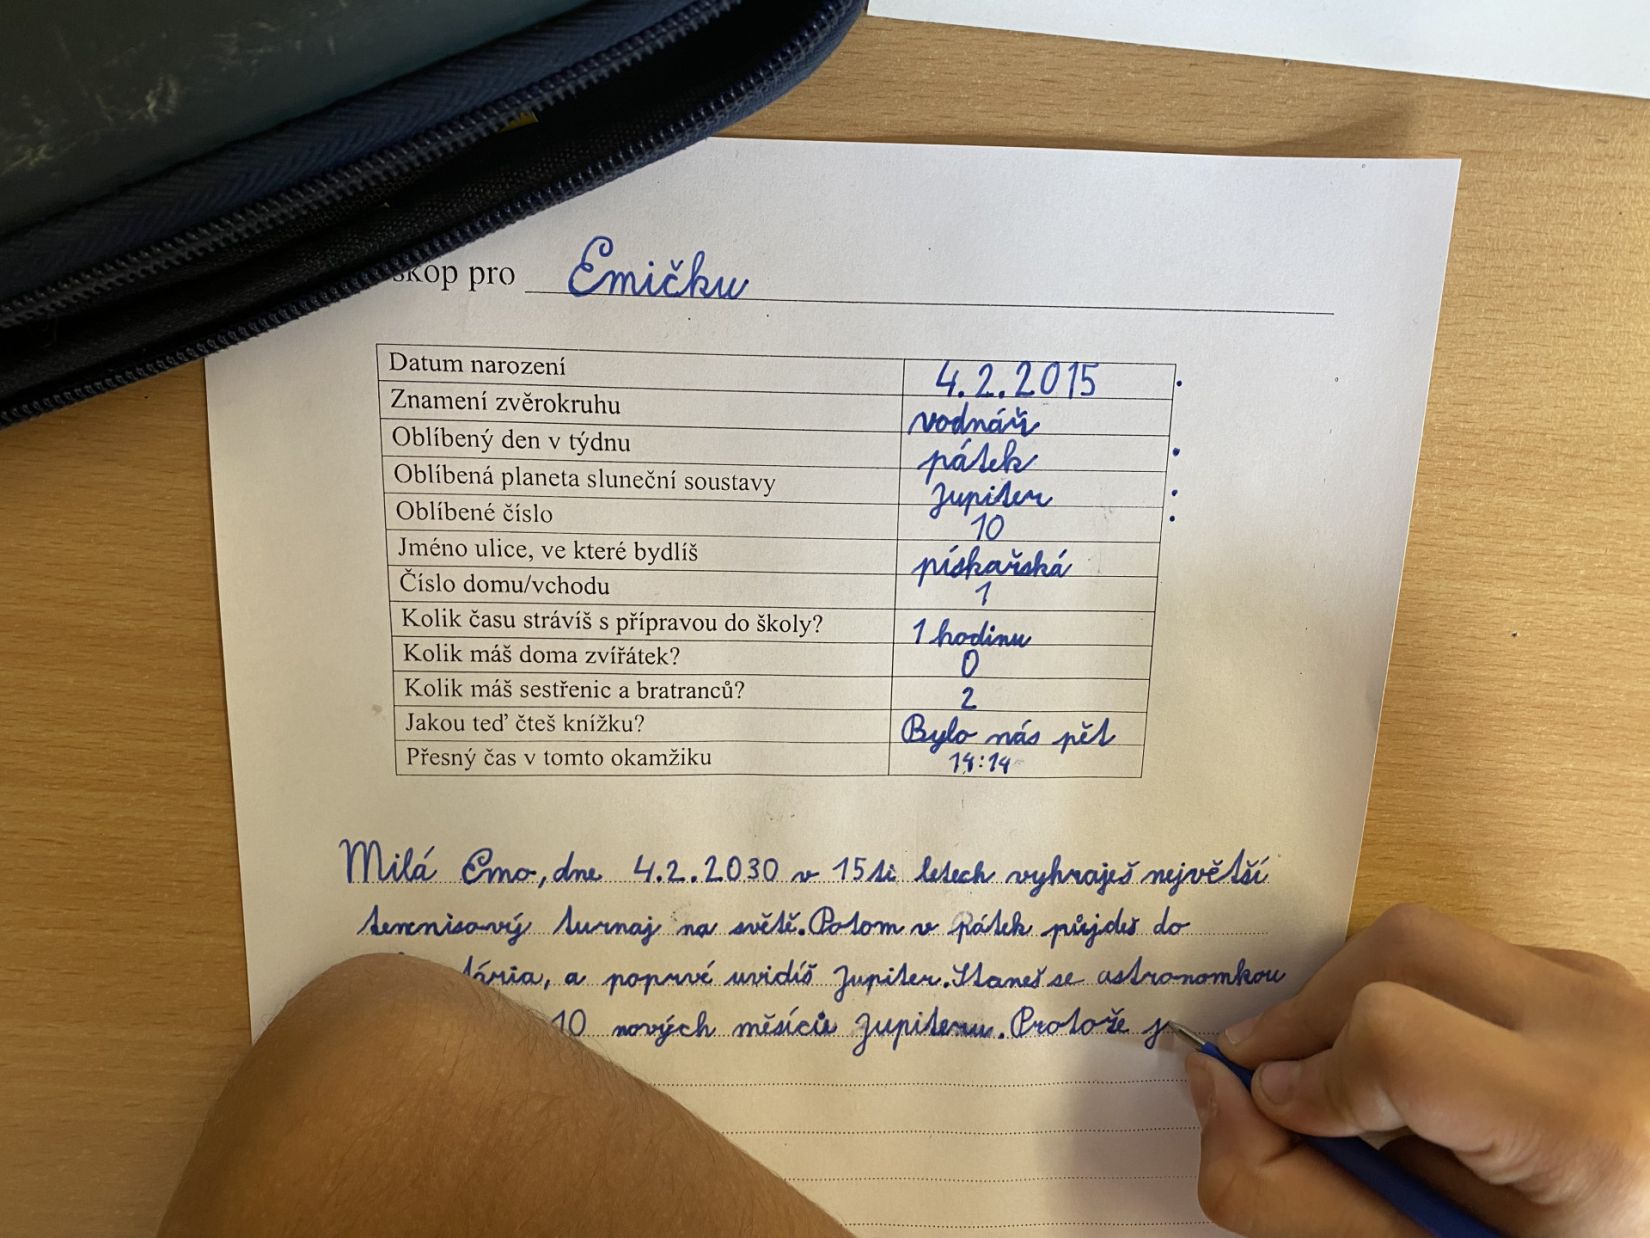 skop pro Emičku
Datum narození 4.2.2015
Znamení zvěrokruhu vodnář
Oblíbený den v týdnu pátek
Oblíbená planeta sluneční soustavy Jupiter
Oblíbené číslo 10
Jméno ulice, ve které bydlíš pískařská
Číslo domu/vchodu 1
Kolik času strávíš s přípravou do školy? 1 hodinu
Kolik máš doma zvířátek? 0
Kolik máš sestřenic a bratranců? 2
Jakou teď čteš knížku? Bylo nás pět
Přesný čas v tomto okamžiku 14:14
Milá Emo, dne 4.2.2030 v 15ti letech vyhraješ největší
tenisový turnaj na světě. Potom v pátek půjdeš do
tária, a poprvé uvidíš Jupiter. Staneš se astronomkou
10 nových měsíců Jupiteru. Protože j